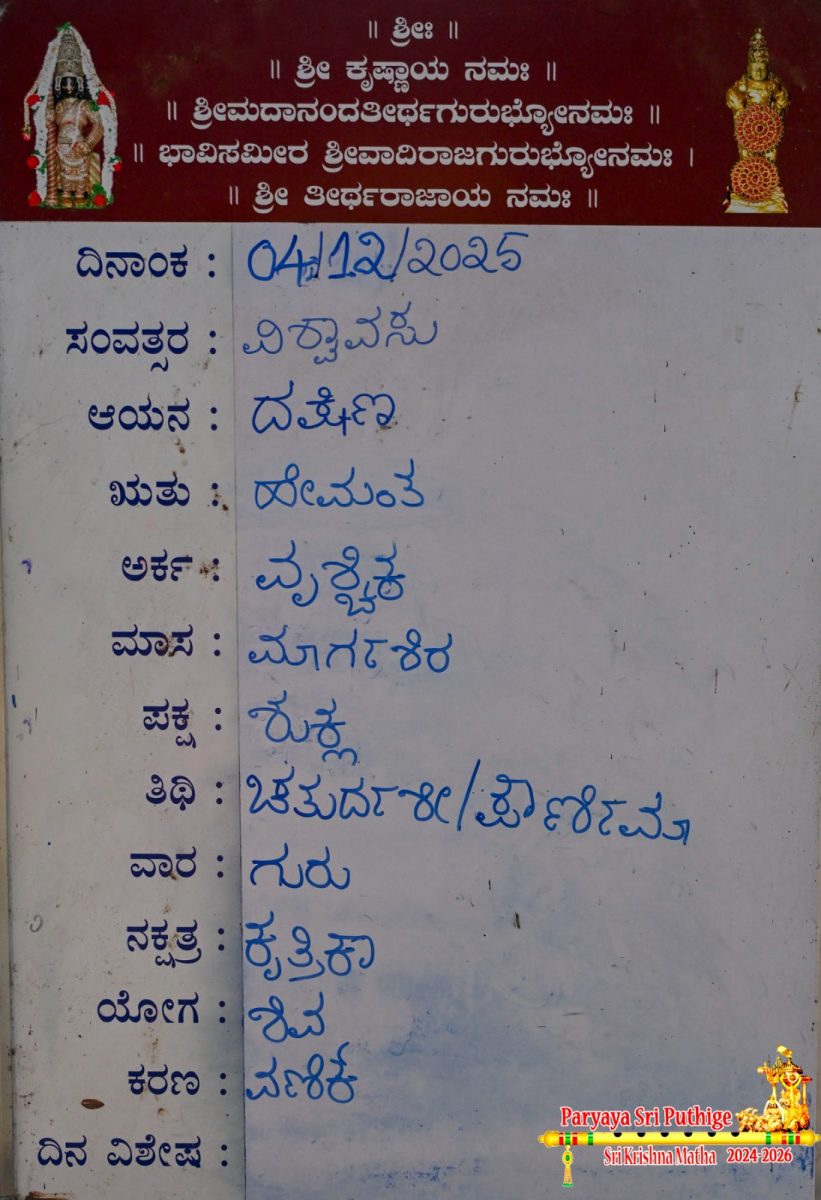 ॥ ಶ್ರೀಃ ॥
॥ ಶ್ರೀ ಕೃಷ್ಣಾಯ ನಮಃ ॥
॥ ಶ್ರೀಮದಾನಂದತೀರ್ಥಗುರುಭ್ಯೋನಮಃ ॥
॥ ಭಾವಿಸಮೀರ ಶ್ರೀವಾದಿರಾಜಗುರುಭ್ಯೋನಮಃ ।
॥ ಶ್ರೀ ತೀರ್ಥರಾಜಾಯ ನಮಃ ॥
ದಿನಾಂಕ : 04/12/2025
ಸಂವತ್ಸರ : ವಿಶ್ವಾವಸು
ಆಯನ : ದಕ್ಷಿಣ
ಋತು : ಹೇಮಂತ
ಅರ್ಕ : ವೃಶ್ಚಿಕ
ಮಾಸ : ಮಾರ್ಗಶಿರ
ಪಕ್ಷ : ಶುಕ್ಲ
ತಿಥಿ : ಚತುರ್ದಶೀ/ಪೌರ್ಣಿಮಾ
ವಾರ : ಗುರು
ನಕ್ಷತ್ರ : ಕೃತ್ತಿಕಾ
ಯೋಗ : ಶಿವ
ಕರಣ : ವಣಿಕೆ
ದಿನ ವಿಶೇಷ :
Paryaya Sri Puthige
Sri Krishna Matha 2024-2026